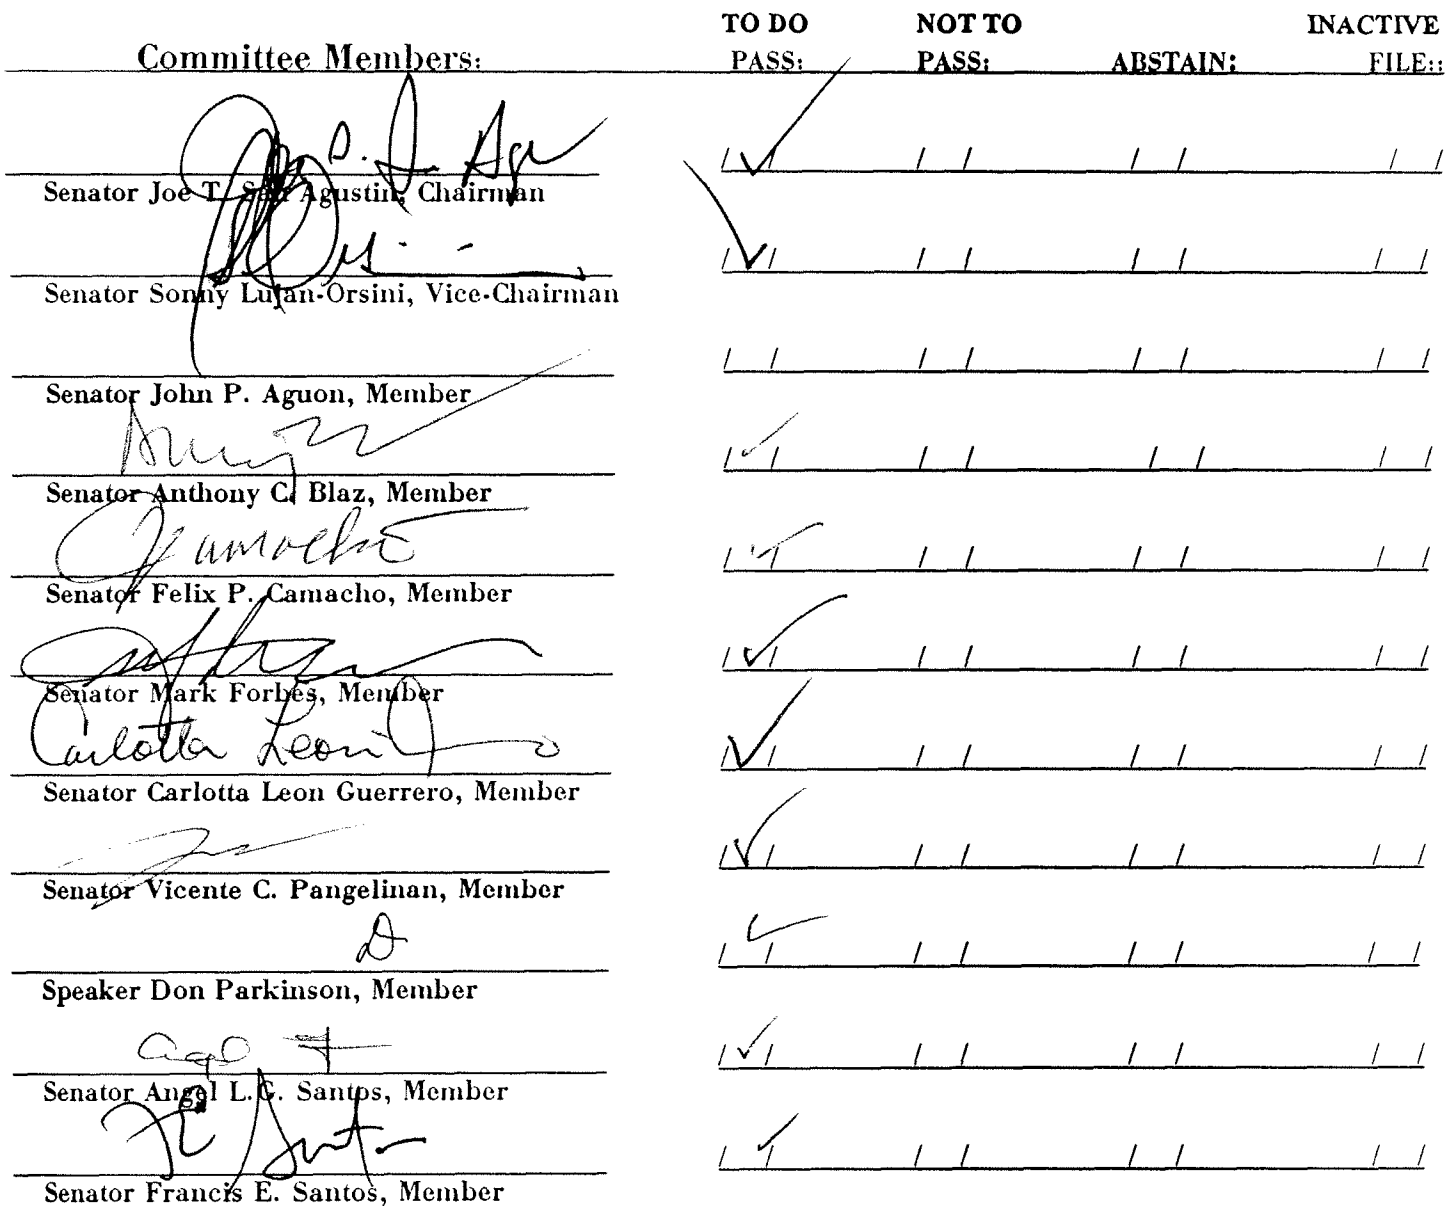 TO DO NOT TO INACTIVE
Committee Members: PASS: PASS: ABSTAIN: FILE::
/ ✓ / / / / / / /
Senator Joe T. San Agustin, Chairman
Orsini
/ ✓ / / / / / / /
Senator Sonny Lujan-Orsini, Vice-Chairman
/ / / / / / / /
Senator John P. Aguon, Member
/ ✓ / / / / / / /
Senator Anthony C. Blaz, Member
Camacho
/ ✓ / / / / / / /
Senator Felix P. Camacho, Member
/ ✓ / / / / / / /
Senator Mark Forbes, Member
Carlotta Leon
/ ✓ / / / / / / /
Senator Carlotta Leon Guerrero, Member
/ ✓ / / / / / / /
Senator Vicente C. Pangelinan, Member
D
/ ✓ / / / / / / /
Speaker Don Parkinson, Member
/ ✓ / / / / / / /
Senator Angel L.G. Santos, Member
/ ✓ / / / / / / /
Senator Francis E. Santos, Member